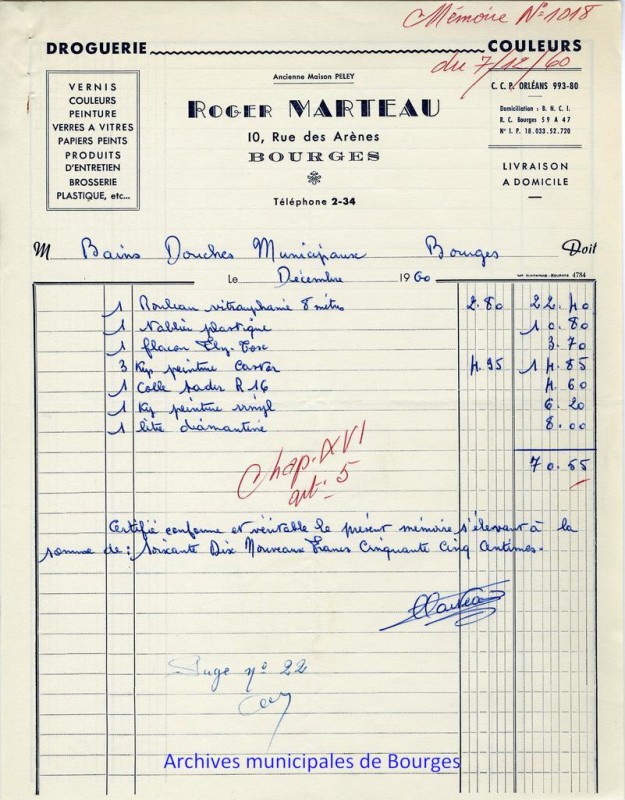 Mémoire N° 1018
du 7/12/60
DROGUERIE COULEURS
VERNIS
COULEURS
PEINTURE
VERRES A VITRES
PAPIERS PEINTS
PRODUITS
D'ENTRETIEN
BROSSERIE
PLASTIQUE, etc...
Ancienne Maison PELEY
ROGER MARTEAU
10, Rue des Arènes
BOURGES
Téléphone 2-34
C. C. P. ORLÉANS 993-80
Domiciliation : B. N. C. I.
R. C. Bourges 59 A 47
N° I. P. 18.033.52.720
LIVRAISON
A DOMICILE
M Bains Douches Municipaux Bourges Doit
Le Décembre 1960 4784
1 Rouleau vitrauphanie 8 mètres 2.80 22.40
1 tablier plastique 10.80
1 flacon Fly-Tox 3.70
3 Kgs peinture Castor 4.95 14.85
1 Colle sader R 16 4.60
1 Kg peinture vinyl 6.20
1 litre diamantine 8.00
70.55
Chap. XVI
art. 5
Certifié conforme et véritable le présent mémoire s'élevant à la
somme de : Soixante Dix Nouveaux Francs Cinquante Cinq Centimes.
Marteau
Page n° 22
Archives municipales de Bourges